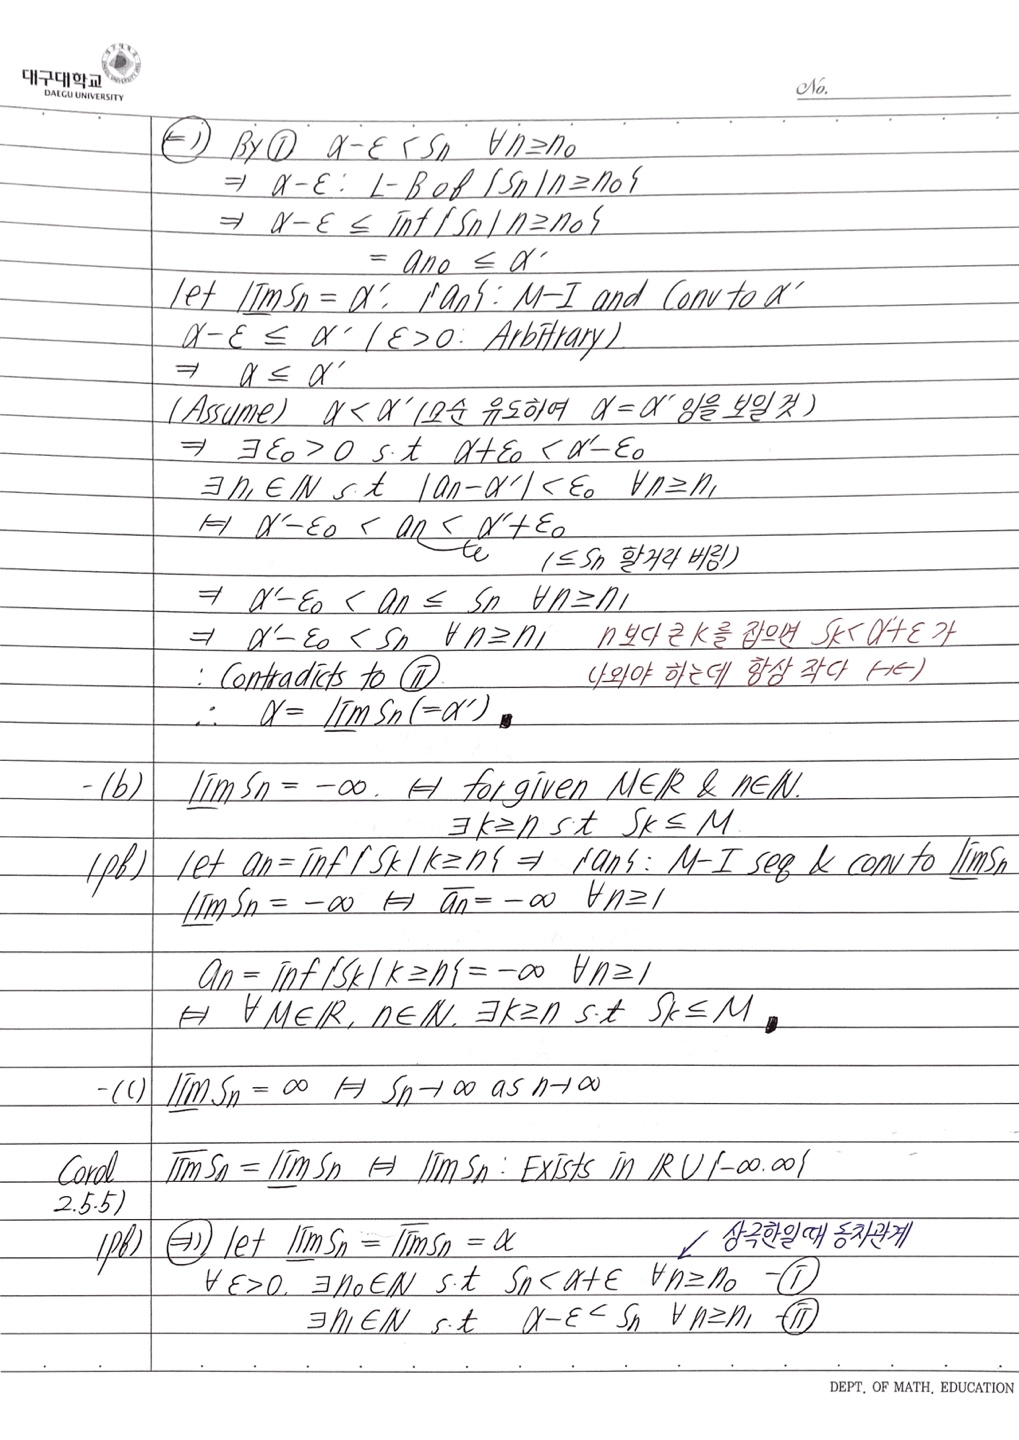 대구대학교
DAEGU UNIVERSITY
No.
⇐) By ① α-ε < Sn ∀n≥n₀
⇒ α-ε : L-B of {Sn | n≥n₀}
⇒ α-ε ≤ inf{Sn | n≥n₀}
= an₀ ≤ α'
let l̲i̲m̲ Sn = α'. {an}: M-I and Conv to α'
α-ε ≤ α' (ε>0: Arbitrary)
⇒ α ≤ α'
(Assume) α < α' (모순 유도하여 α=α' 임을 보일것)
⇒ ∃ε₀>0 s.t α+ε₀ < α'-ε₀
∃n₁∈ℕ s.t |an-α'| < ε₀ ∀n≥n₁
⇔ α'-ε₀ < an < α'+ε₀
(≤Sn 할거라 버림)
⇒ α'-ε₀ < an ≤ Sn ∀n≥n₁
⇒ α'-ε₀ < Sn ∀n≥n₁ n보다 큰 k를 잡으면 Sk<α'+ε가
: Contradicts to ⓘⓘ 나와야 하는데 항상 작다 (→←)
∴ α = l̲i̲m̲ Sn (=α')
-(b) l̲i̲m̲ Sn = -∞. ⇔ for given M∈ℝ & n∈ℕ.
∃k≥n s.t Sk ≤ M
(pf) let an = inf{Sk | k≥n} ⇒ {an}: M-I seq & conv to l̲i̲m̲ Sn
l̲i̲m̲ Sn = -∞ ⇔ an = -∞ ∀n≥1
an = inf{Sk | k≥n} = -∞ ∀n≥1
⇔ ∀M∈ℝ, n∈ℕ. ∃k≥n s.t Sk ≤ M
-(c) l̲i̲m̲ Sn = ∞ ⇔ Sn→∞ as n→∞
Corol l̅i̅m̅ Sn = l̲i̲m̲ Sn ⇔ lim Sn : Exists in ℝ∪{-∞.∞}
2.5.5)
(pf) ⇒) let l̲i̲m̲ Sn = l̅i̅m̅ Sn = α 상극한일때 동치관계
∀ε>0. ∃n₀∈ℕ s.t Sn<α+ε ∀n≥n₀ -ⓘ
∃n₁∈ℕ s.t α-ε<Sn ∀n≥n₁ -ⓘⓘ
DEPT. OF MATH. EDUCATION